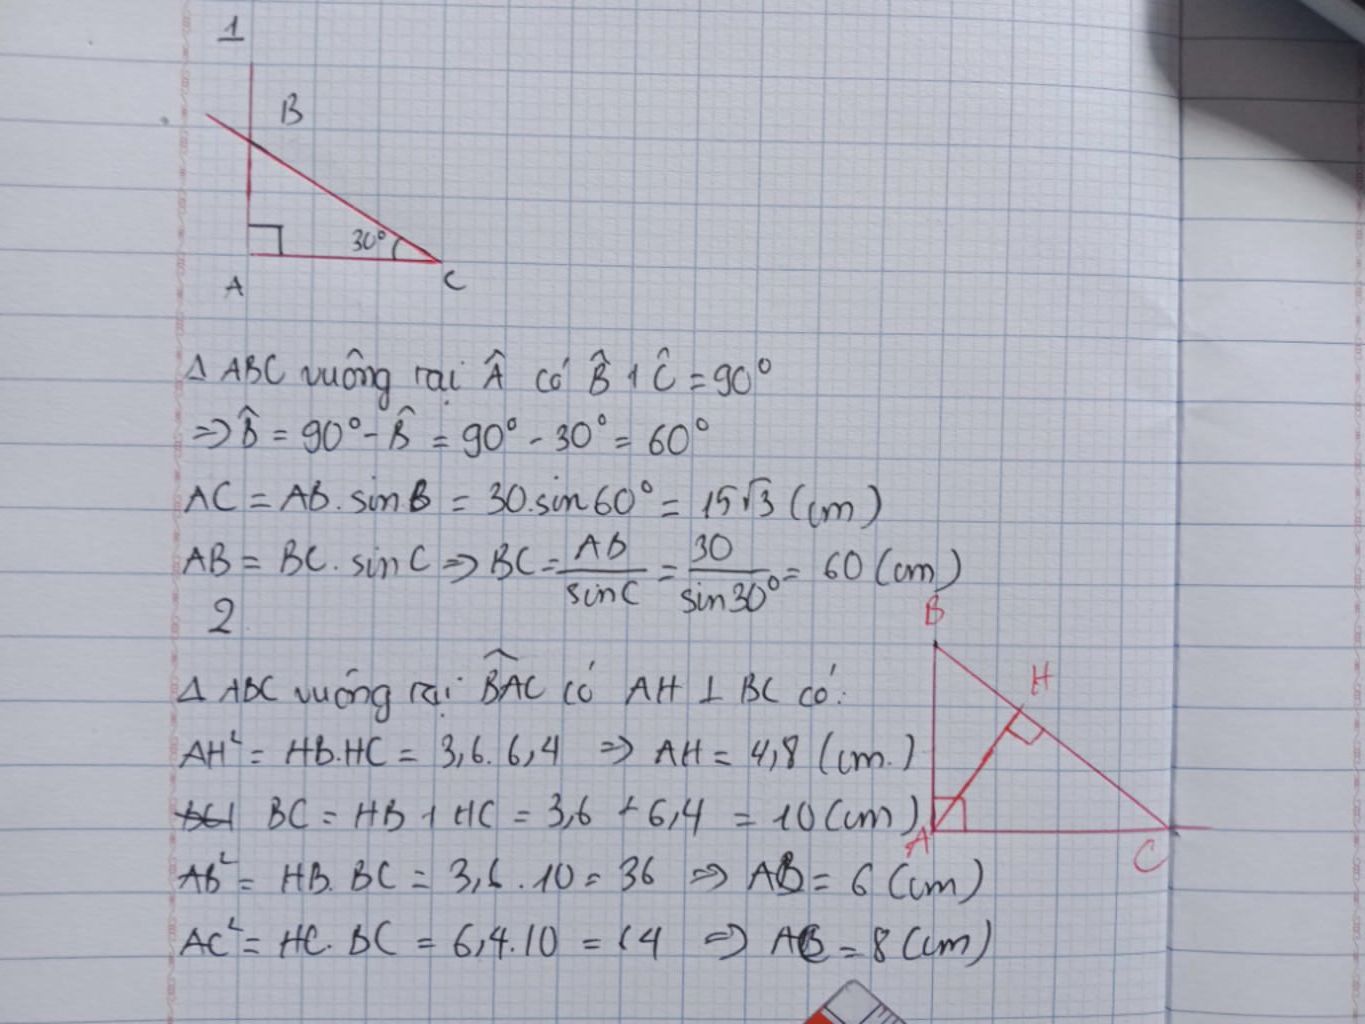 1
B
30°
A
C
Δ ABC vuông tại Â có B̂ + Ĉ = 90°
=> B̂ = 90° - B̂ = 90° - 30° = 60°
AC = AB. sinB = 30.sin60° = 15√3 (cm)
AB = BC. sinC => BC = AB/sinC = 30/sin30° = 60 (cm)
2
B
H
A
C
Δ ABC vuông tại BAC có AH ⊥ BC có:
AH² = HB.HC = 3,6. 6,4 => AH = 4,8 (cm.)
BC = HB + HC = 3,6 + 6,4 = 10 (cm)
AB² = HB. BC = 3,6 . 10 = 36 => AB = 6 (cm)
AC² = HC. BC = 6,4.10 = 64 => AC = 8 (cm)